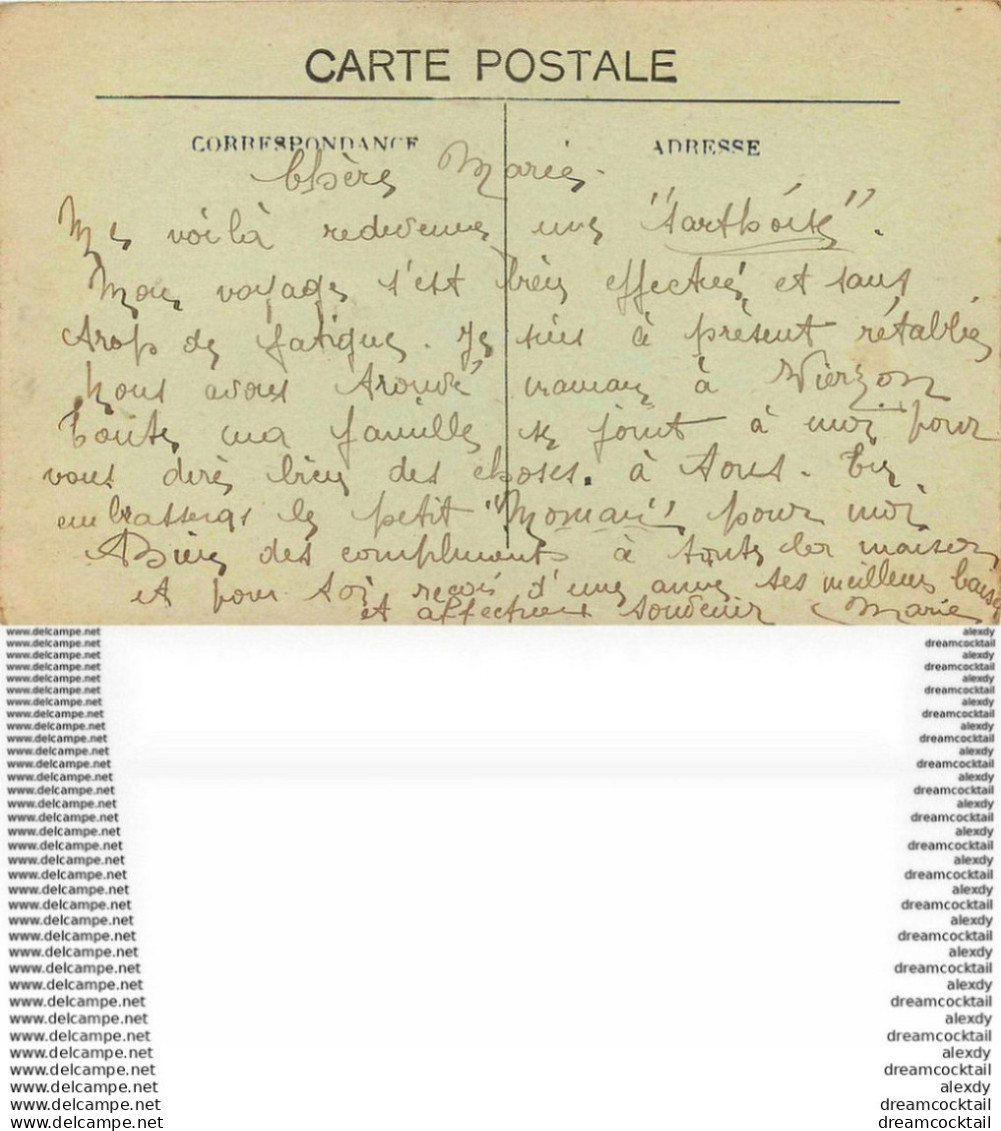 CARTE POSTALE
CORRESPONDANCE
ADRESSE
Chère Marie.
Me voilà redevenue une "Sarthoise".
Mon voyage s'est bien effectué et sans
trop de fatigue. Je suis à présent rétablie
Nous avons trouvé maman à Vierzon
Toute ma famille se joint à moi pour
vous dire bien des choses. à tous. Tu
embrasseras le petit "Moman" pour moi
Bien des compliments à toute la maison
et pour toi reçois d'une amie ses meilleurs baisers
et affectueux souvenir Marie
www.delcampe.net alexdy
www.delcampe.net dreamcocktail
www.delcampe.net alexdy
www.delcampe.net dreamcocktail
www.delcampe.net alexdy
www.delcampe.net dreamcocktail
www.delcampe.net alexdy
www.delcampe.net dreamcocktail
www.delcampe.net alexdy
www.delcampe.net dreamcocktail
www.delcampe.net alexdy
www.delcampe.net dreamcocktail
www.delcampe.net alexdy
www.delcampe.net dreamcocktail
www.delcampe.net alexdy
www.delcampe.net dreamcocktail
www.delcampe.net alexdy
www.delcampe.net dreamcocktail
www.delcampe.net alexdy
www.delcampe.net dreamcocktail
www.delcampe.net alexdy
www.delcampe.net dreamcocktail
www.delcampe.net alexdy
www.delcampe.net dreamcocktail
www.delcampe.net alexdy
www.delcampe.net dreamcocktail
www.delcampe.net alexdy
www.delcampe.net dreamcocktail
www.delcampe.net alexdy
www.delcampe.net dreamcocktail
www.delcampe.net alexdy
www.delcampe.net dreamcocktail
www.delcampe.net alexdy
www.delcampe.net dreamcocktail
www.delcampe.net dreamcocktail